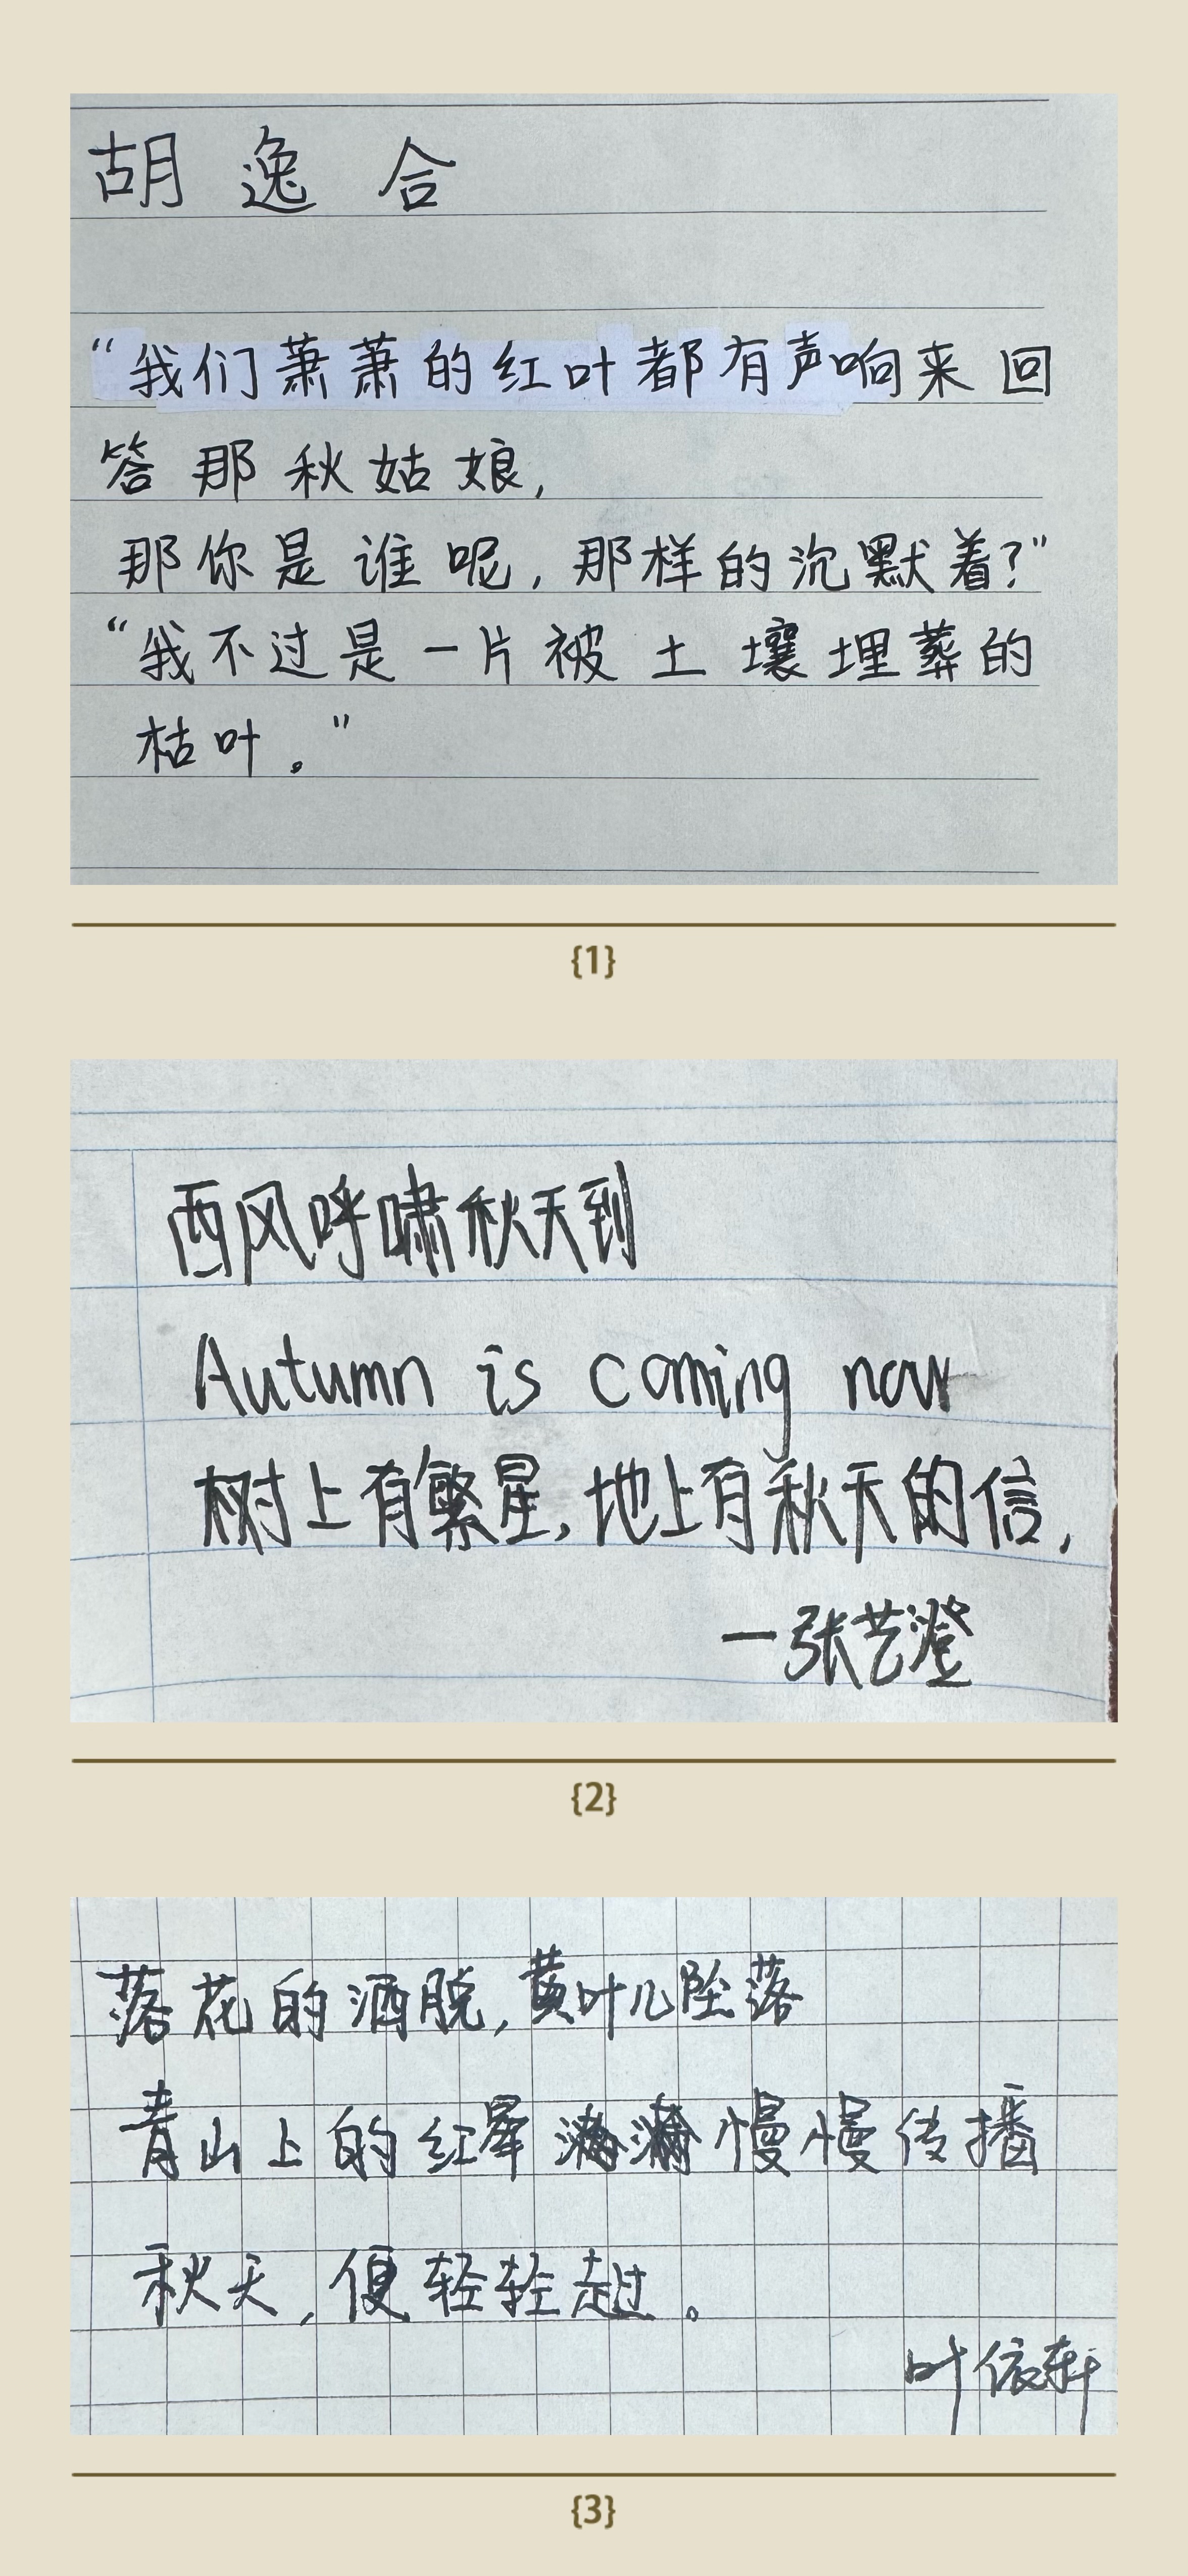 胡逸合
“我们萧萧的红叶都有声响来回
答那秋姑娘,
那你是谁呢,那样的沉默着?”
“我不过是一片被土壤埋葬的
枯叶。”
{1}
西风呼啸秋天到
Autumn is coming now
树上有繁星,地上有秋天的信,
—张艺澄
{2}
落花的洒脱,黄叶儿坠落
青山上的红晕慢慢传播
秋天,便轻轻走过。
叶依轩
{3}